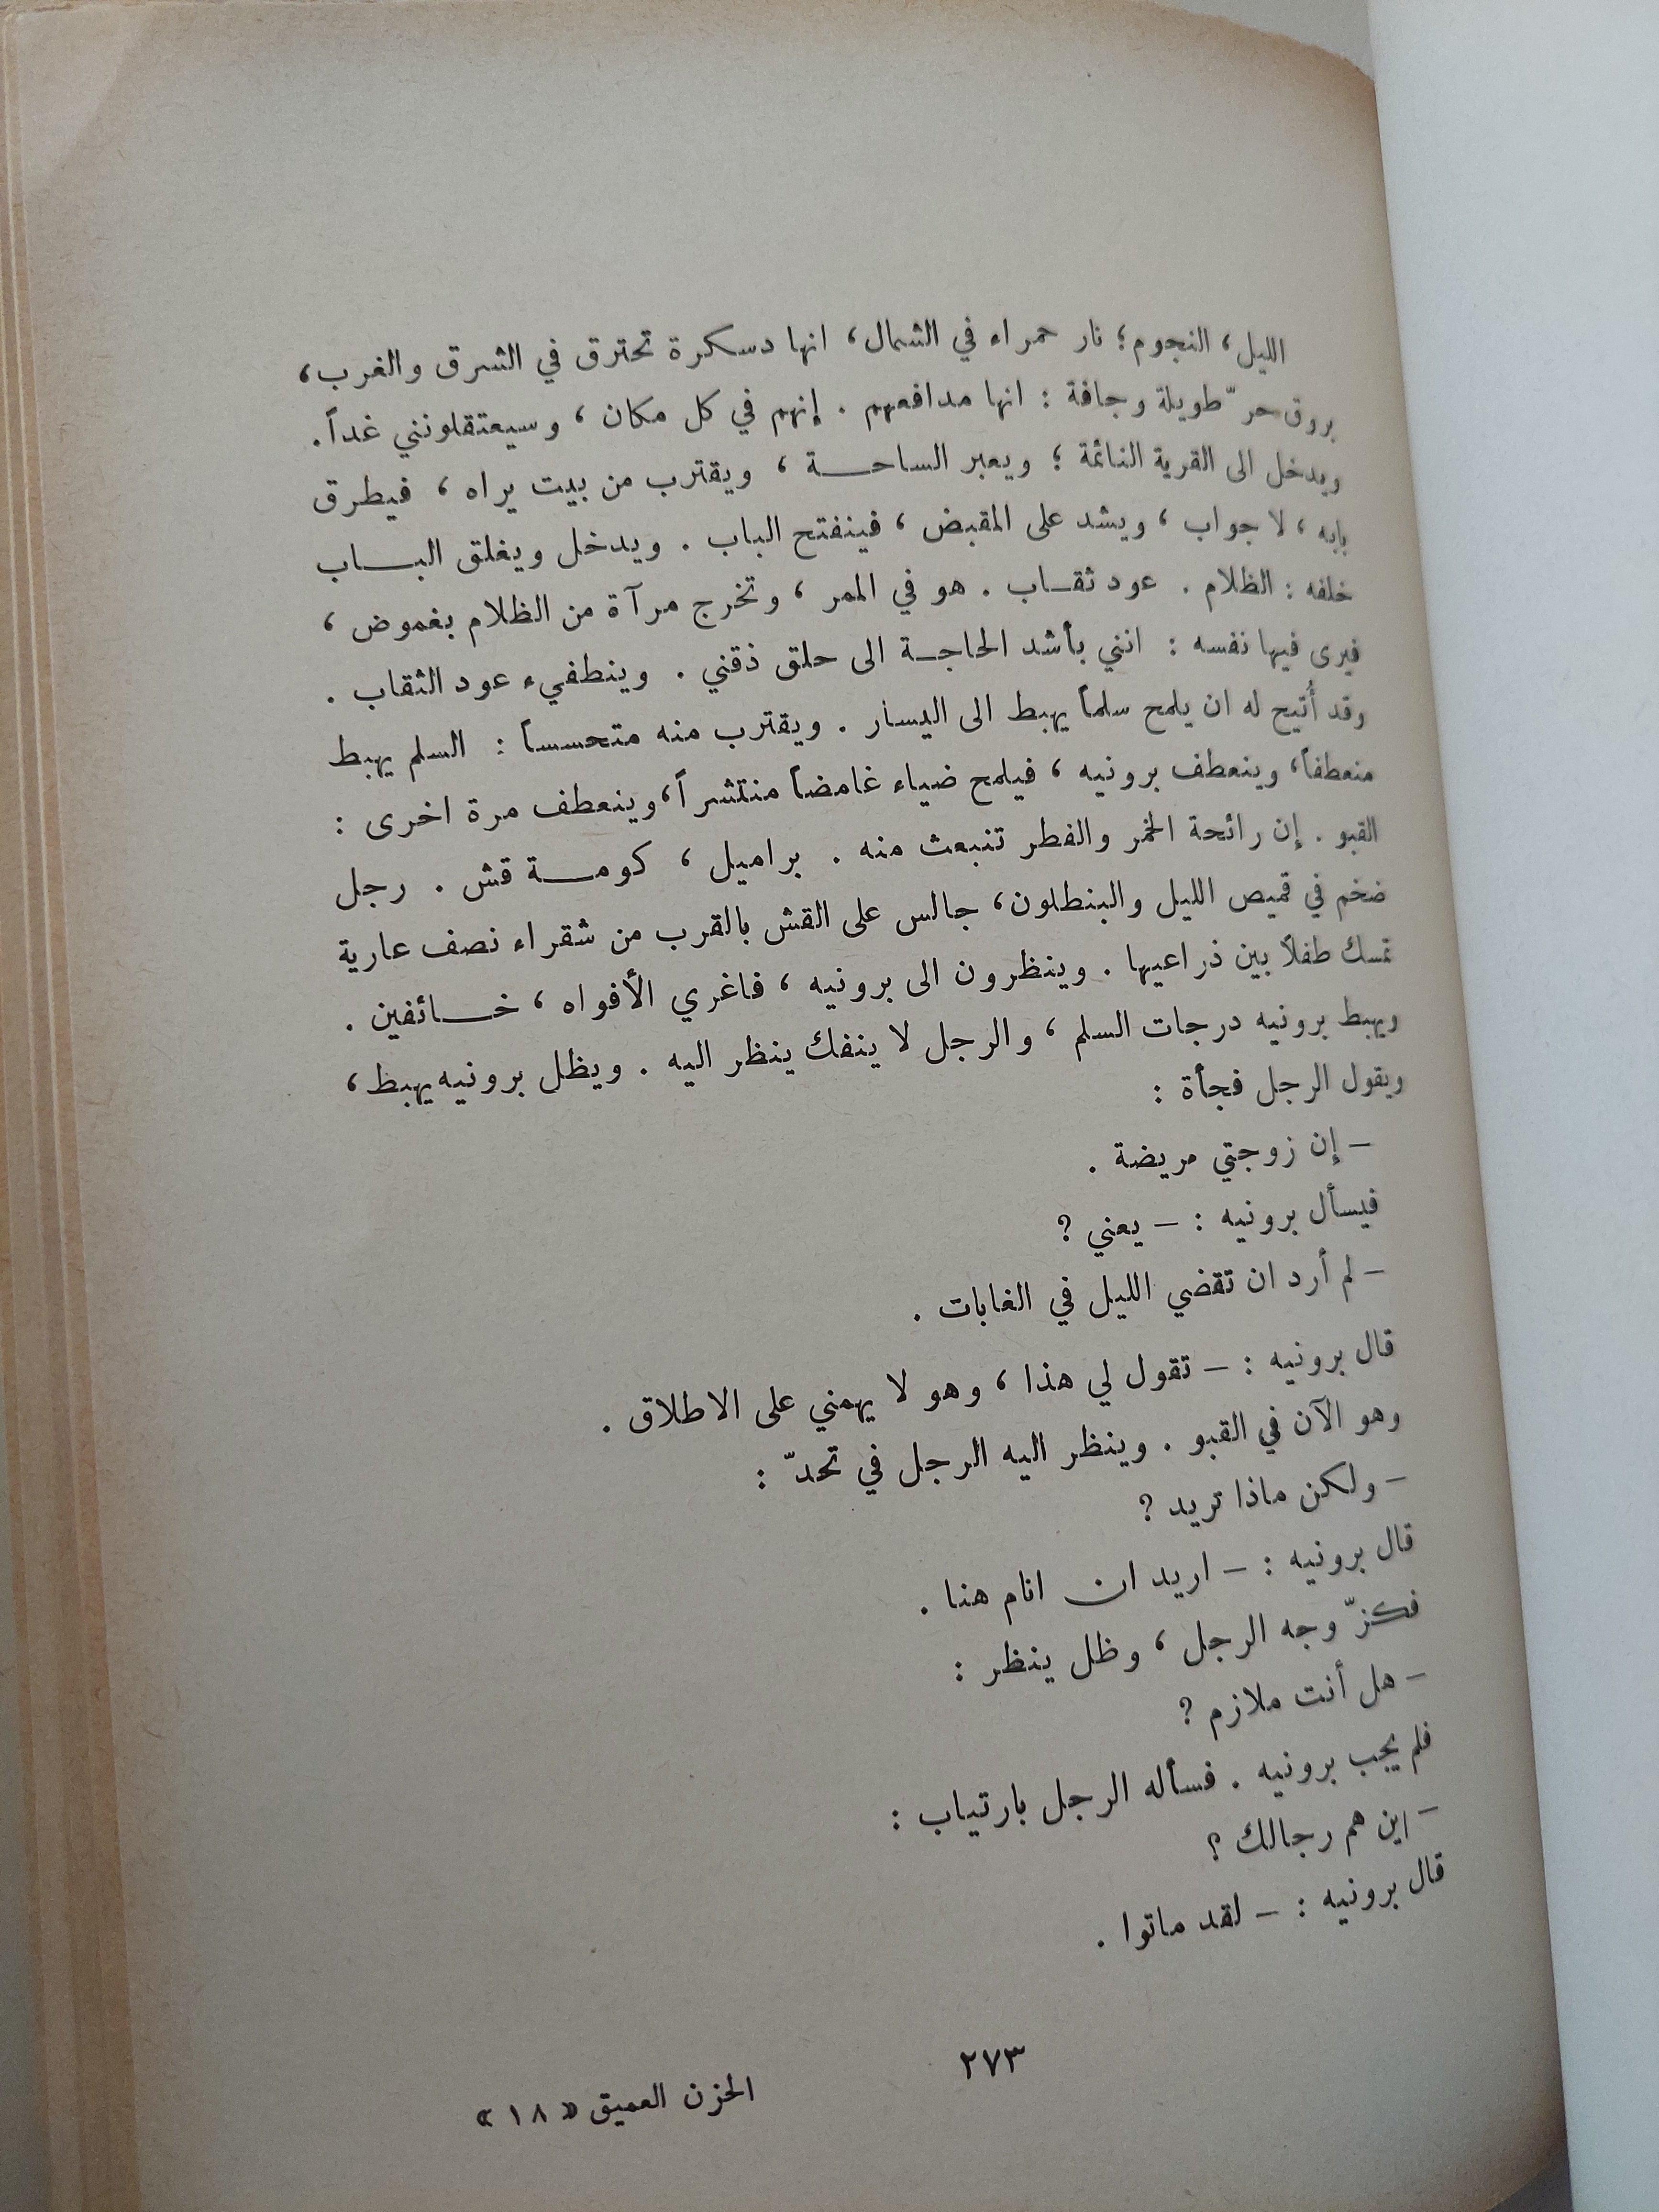 الليل، النجوم؛ نار حمراء في الشمال، انها دسكرة تحترق في الشرق والغرب،
بروق حرّ طويلة وجافة : انها مدافعهم . إنهم في كل مكان ، وسيعتقلونني غداً.
ويدخل الى القرية النائمة ؛ ويعبر الساحة ، ويقترب من بيت يراه ، فيطرق
بابه ، لا جواب ، ويشد على المقبض ، فينفتح الباب . ويدخل ويغلق الباب
خلفه : الظلام . عود ثقاب . هو في الممر ، وتخرج مرآة من الظلام بغموض ،
فيرى فيها نفسه : انني بأشد الحاجة الى حلق ذقني . وينطفيء عود الثقاب .
وقد أُتيح له ان يلمح سلماً يهبط الى اليسار . ويقترب منه متحسساً : السلم يهبط
منعطفاً، وينعطف برونيه ، فيلمح ضياء غامضاً منتشراً، وينعطف مرة اخرى :
القبو . إن رائحة الخمر والفطر تنبعث منه . براميل ، كومة قش . رجل
ضخم في قميص الليل والبنطلون، جالس على القش بالقرب من شقراء نصف عارية
تمسك طفلاً بين ذراعيها . وينظرون الى برونيه ، فاغري الأفواه ، خائفين .
ويهبط برونيه درجات السلم ، والرجل لا ينفك ينظر اليه . ويظل برونيه يهبط ،
ويقول الرجل فجأة :
– إن زوجتي مريضة .
فيسأل برونيه : – يعني ؟
– لم أرد ان تقضي الليل في الغابات .
قال برونيه : – تقول لي هذا ، وهو لا يهمني على الاطلاق .
وهو الآن في القبو . وينظر اليه الرجل في تحدّ :
– ولكن ماذا تريد ؟
قال برونيه : – اريد ان انام هنا .
فكزّ وجه الرجل ، وظل ينظر :
– هل أنت ملازم ؟
فلم يجب برونيه . فسأله الرجل بارتياب :
– اين هم رجالك ؟
قال برونيه : – لقد ماتوا .
٢٧٣
الحزن العميق «١٨»